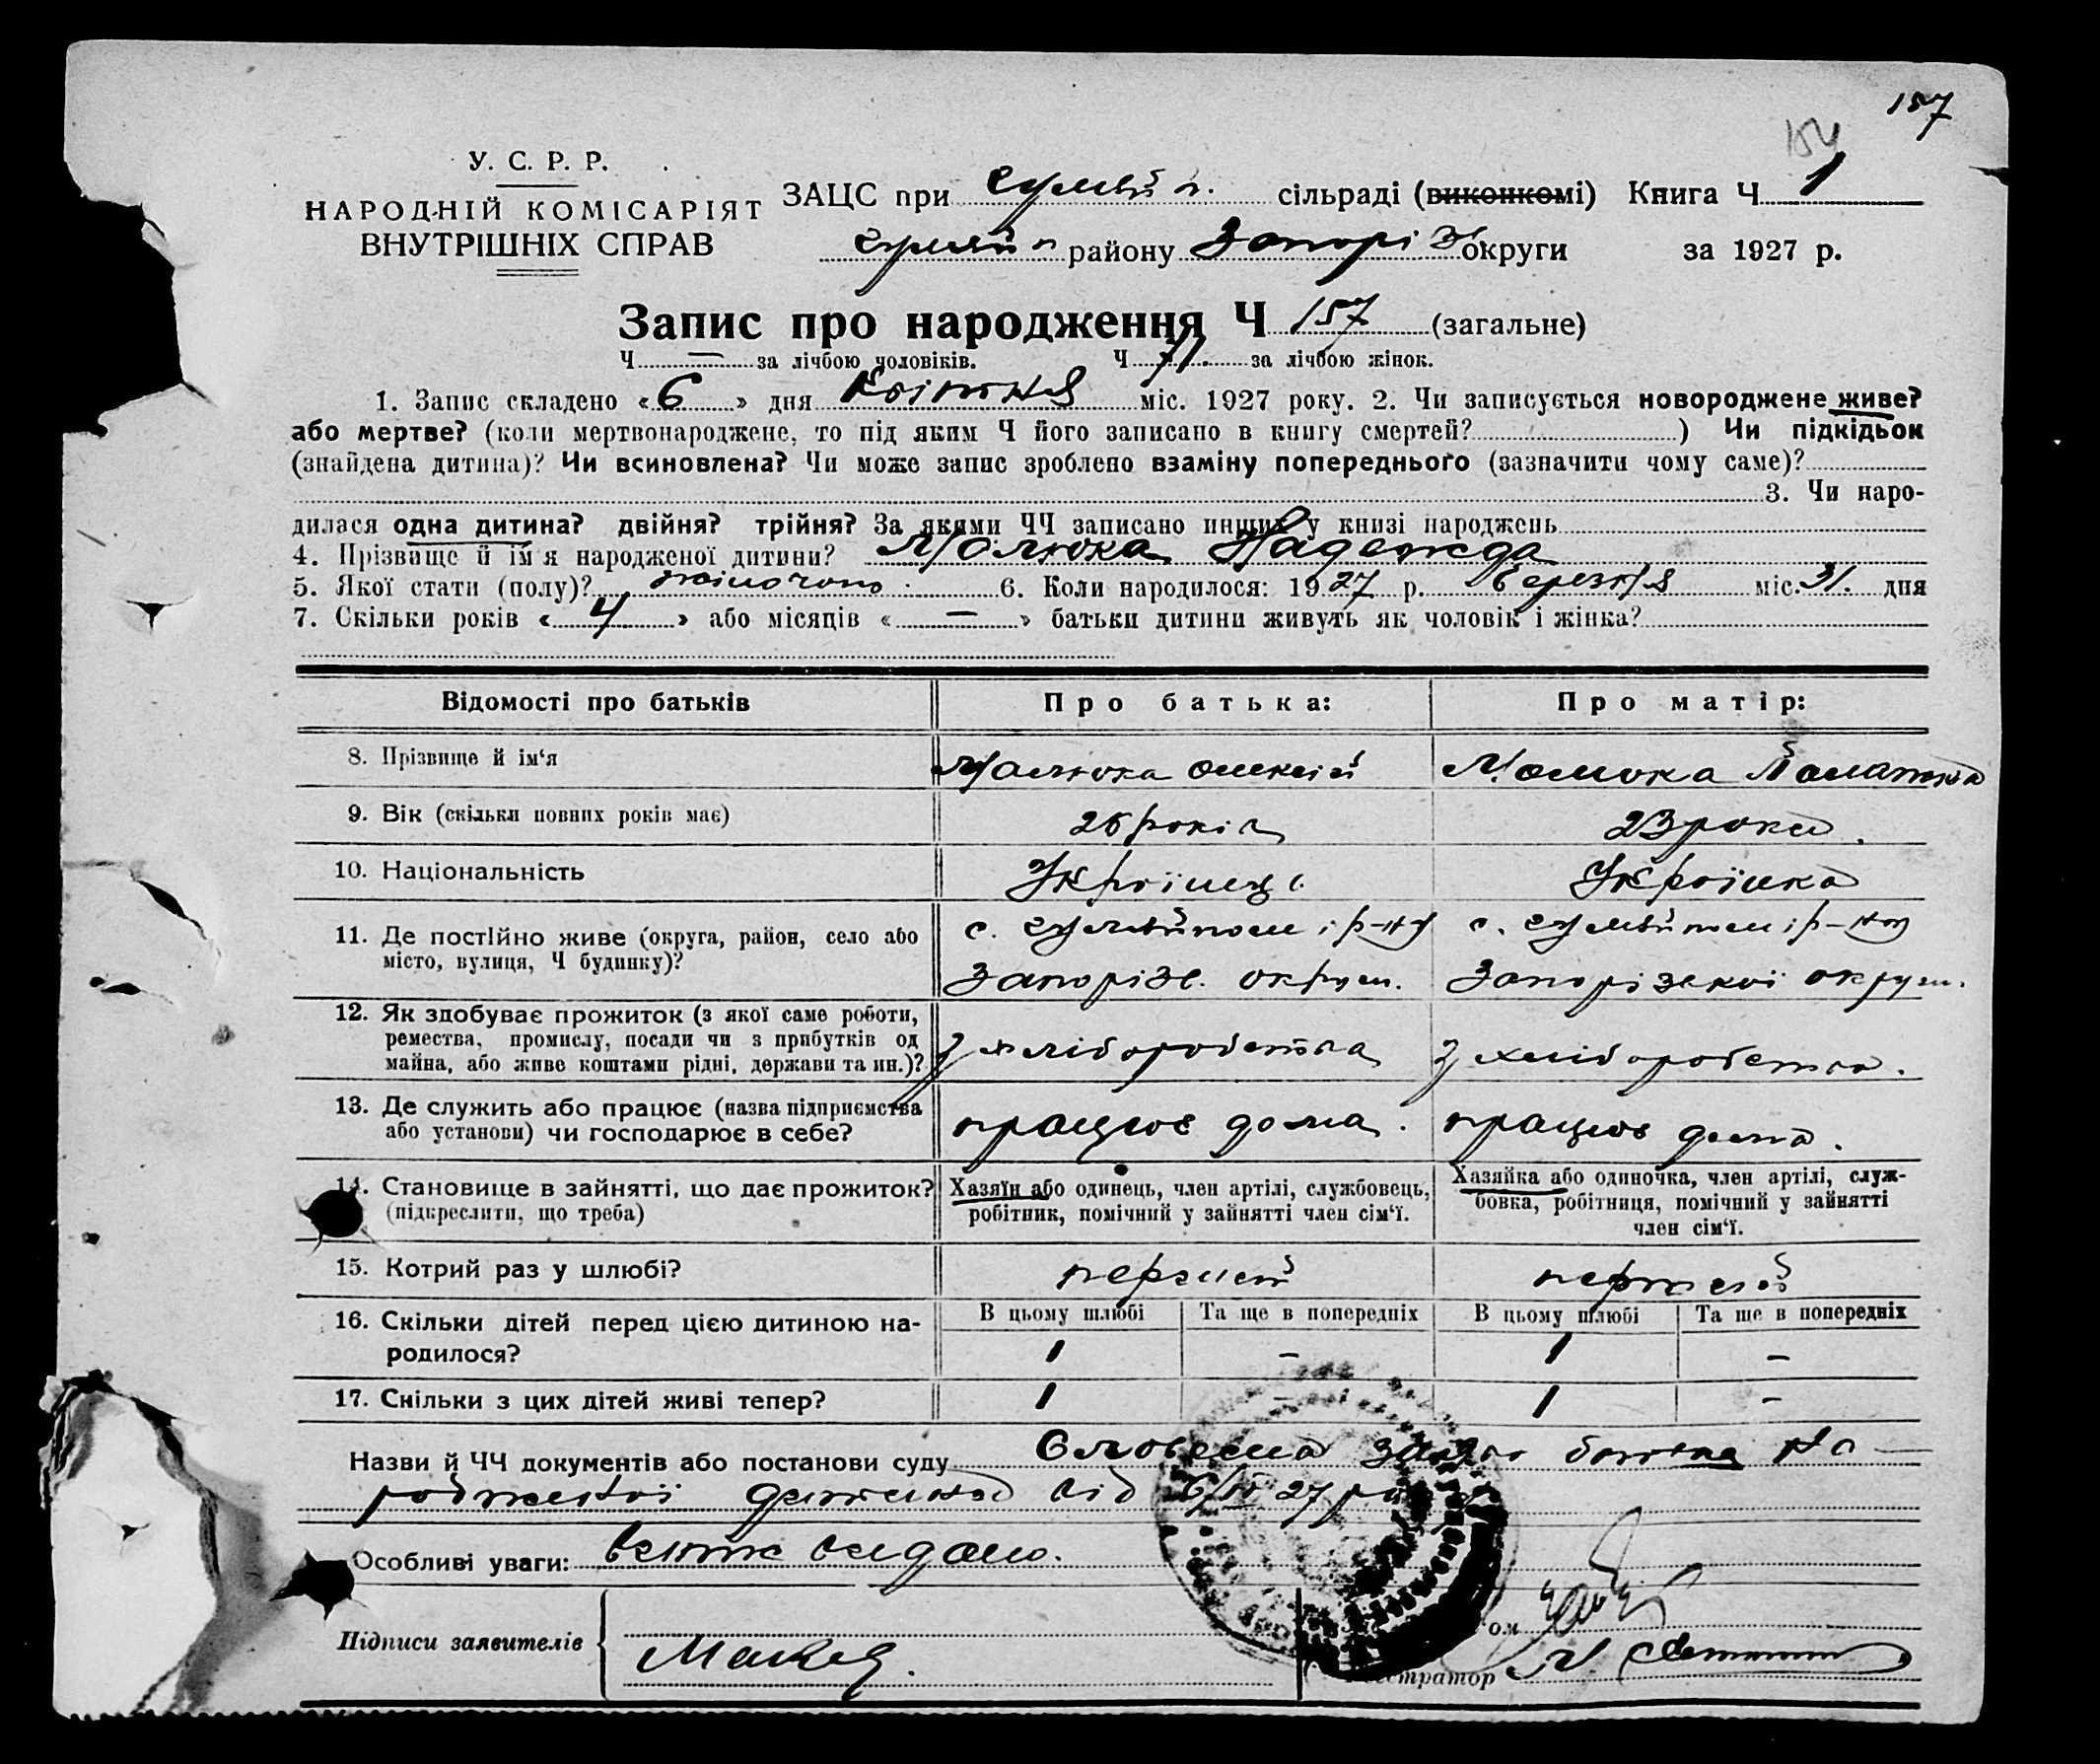 157
154
У. С. Р. Р.
НАРОДНІЙ КОМІСАРІЯТ
ВНУТРІШНІХ СПРАВ
ЗАЦС при Гуляйп. сільраді (виконкомі) Книга Ч 1
Гуляйп району Запоріз округи за 1927 р.
Запис про народження Ч 157 (загальне)
Ч — за лічбою чоловіків. Ч 71. за лічбою жінок.
1. Запис складено «6» дня Квітня міс. 1927 року. 2. Чи записується новороджене живе?
або мертве? (коли мертвонароджене, то під яким Ч його записано в книгу смертей? ) Чи підкідьок
(знайдена дитина)? Чи всиновлена? Чи може запис зроблено взаміну попереднього (зазначити чому саме)?
3. Чи наро-
дилася одна дитина? двійня? трійня? За якими ЧЧ записано инших у книзі народжень
4. Прізвище й ім'я народженої дитини? Малюка Надежда
5. Якої стати (полу)? жіночого 6. Коли народилося: 1927 р. березня міс. 31. дня
7. Скільки років «4» або місяців «—» батьки дитини живуть як чоловік і жінка?
Відомості про батьків Про батька: Про матір:
8. Прізвище й ім'я Малюка Олексій Малюка
9. Вік (скільки повних років має) 26 років 23 роки.
10. Національність Українець. Українка
11. Де постійно живе (округа, район, село або
місто, вулиця, Ч будинку)?
с. Гуляйполе і р-ну
Запорізь. округи.
с. Гуляйполе і р-ну
Запорізької округи.
12. Як здобуває прожиток (з якої саме роботи,
ремества, промислу, посади чи з прибутків од
майна, або живе коштами рідні, держави та ин.)?
З хліборобства З хліборобства.
13. Де служить або працює (назва підприємства
або установи) чи господарює в себе?
працює дома. працює дома.
14. Становище в зайнятті, що дає прожиток?
(підкреслити, що треба)
Хазяїн або одинець, член артілі, службовець,
робітник, помічний у зайнятті член сім'ї.
Хазяйка або одиночка, член артілі, служ-
бовка, робітниця, помічний у зайнятті
член сім'ї.
15. Котрий раз у шлюбі? перший перший
16. Скільки дітей перед цією дитиною на-
родилося?
В цьому шлюбі Та ще в попередніх В цьому шлюбі Та ще в попередніх
1 – 1 –
17. Скільки з цих дітей живі тепер? 1 – 1 –
Назви й ЧЧ документів або постанови суду Словесна заява батька на-
родженої дитини від 6/IV 27 року
Особливі уваги: витяг видано.
Підписи заявителів